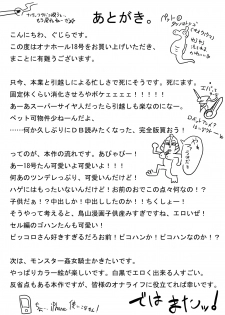 あとがき。
こんにちわ、ぐじらです。
この度はオナホール18号をお買い上げいただき、
まことに有難うございます。
只今、本業と引越しによる忙しさで死にそうです。死にます。
固定休くらい消化させろやボケェェェェ!!!!!!
あーあスーパーサイヤ人だったら引越しも楽なのになー。
ペット可物件少ねーんだよ。
……何か久しぶりにDB読みたくなった、完全版買おう!
ってのが、本作の流れです。あびゃびー!
あー18号たん可愛いよ可愛いよ!!!
何あのツンデレっぷり、可愛いんだけど!
ハゲにはもったいないんだけど!お前のおでこの点々何なの!?
子供だぁ!?中出しか!中出ししたのか!ちくしょー!
そうやって考えると、鳥山漫画子供産みすぎですね、エロいぜ!
セル編のゴハンたんも可愛い!
ピッコロさん好きすぎるだろお前!ピコハンか!ピコハンなのか!?
次は、モンスター姦女騎士かきたいです。
やっぱりカラー絵が楽です。白黒でエロく出来る人すごい。
反省点もある本作ですが、皆様のオナライフに役立てれば幸いです。
ではまたッ!